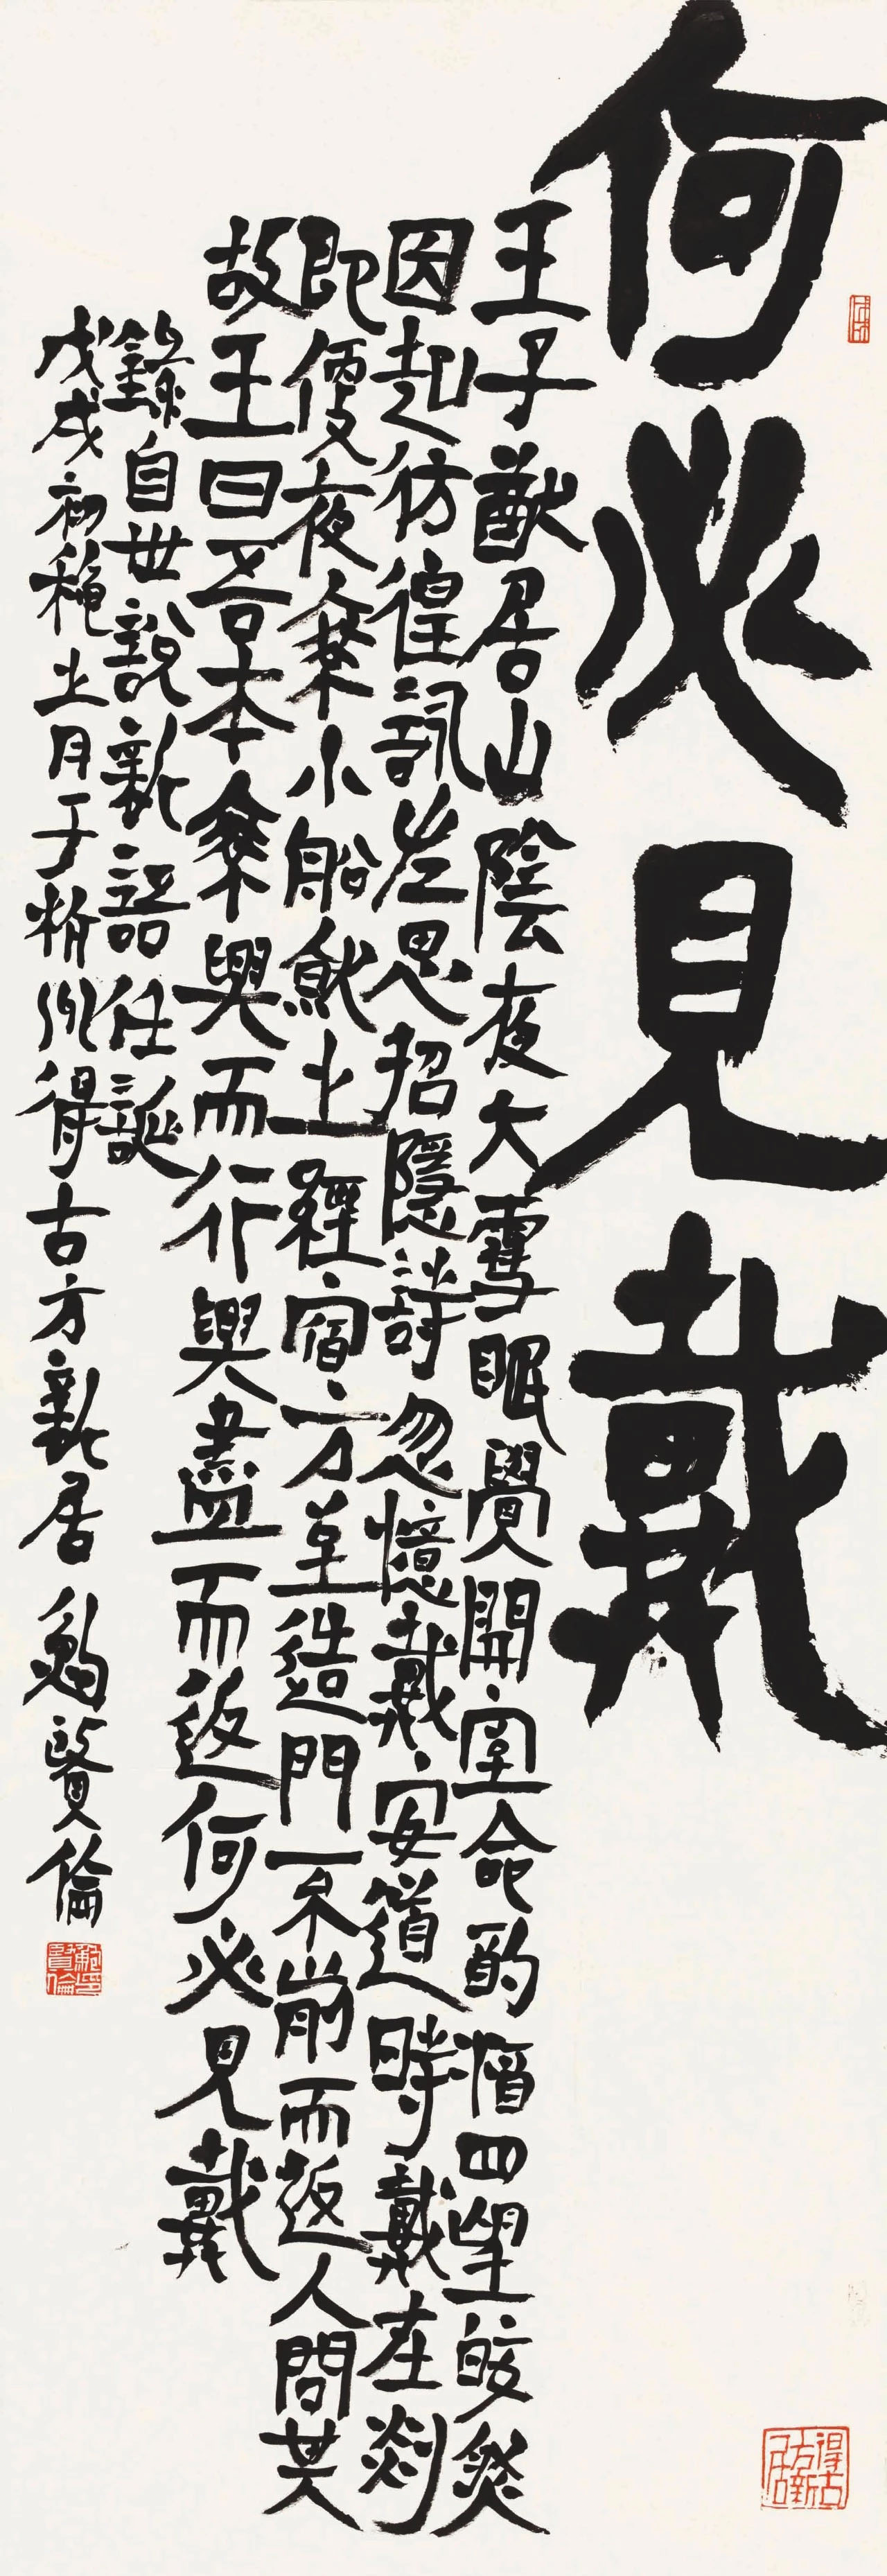 何必見戴
王子猷居山陰夜大雪眠覺開室命酌酒四望皎然
因起彷徨詠左思招隱詩忽憶戴安道時戴在剡
即便夜乘小船就之經宿方至造門不前而返人問其
故王曰吾本乘興而行興盡而返何必見戴
錄自世說新語任誕
戊戌初秋之月于州得古方新居 賢倫
得古方新居